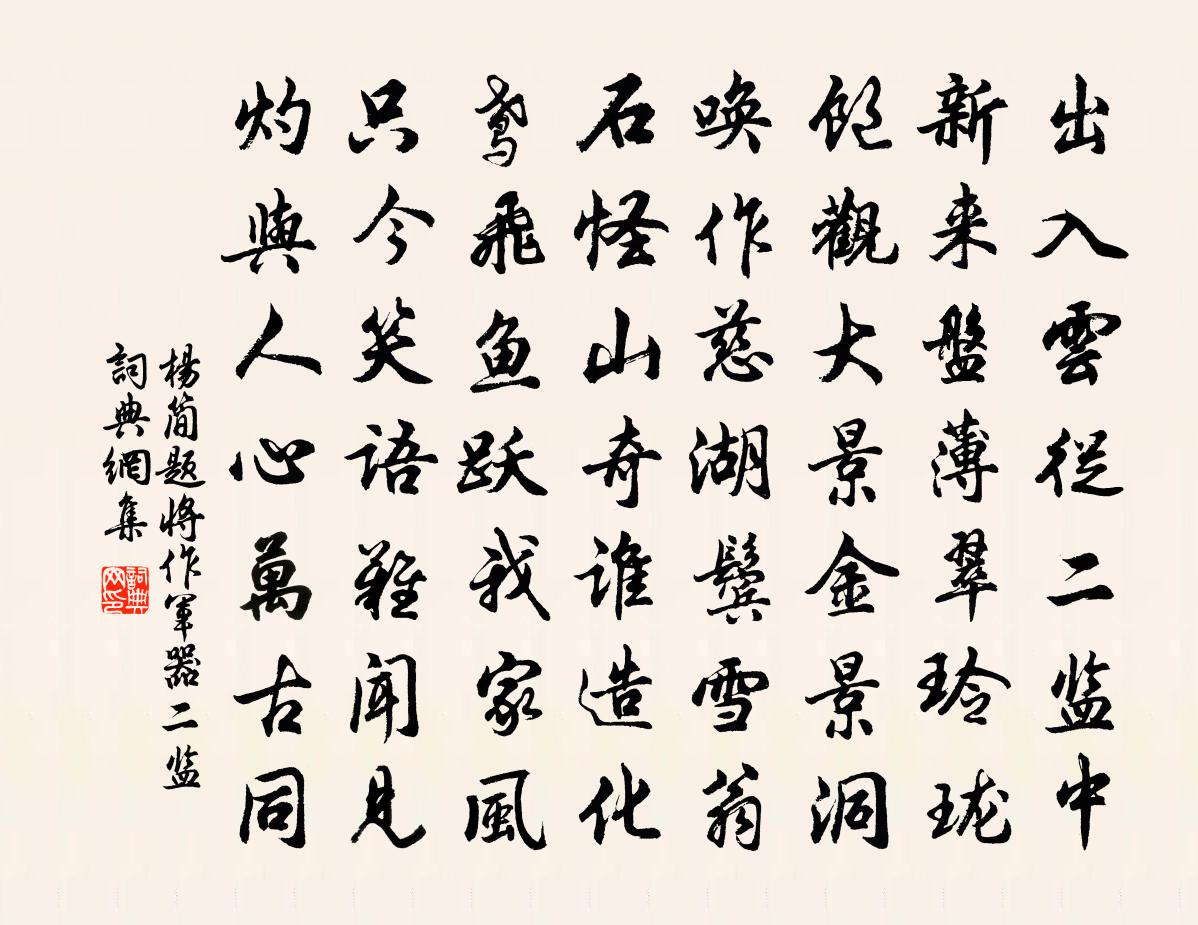 出入雲從二监中
新来盤薄翠玲珑
飽觀大景金景洞
唤作慈湖鬓雪翁
石怪山奇谁造化
鸢飛鱼跃我家風
只今笑语難闻见
灼與人心萬古同
楊简题將作军器二监
詞典網集
詞典网印